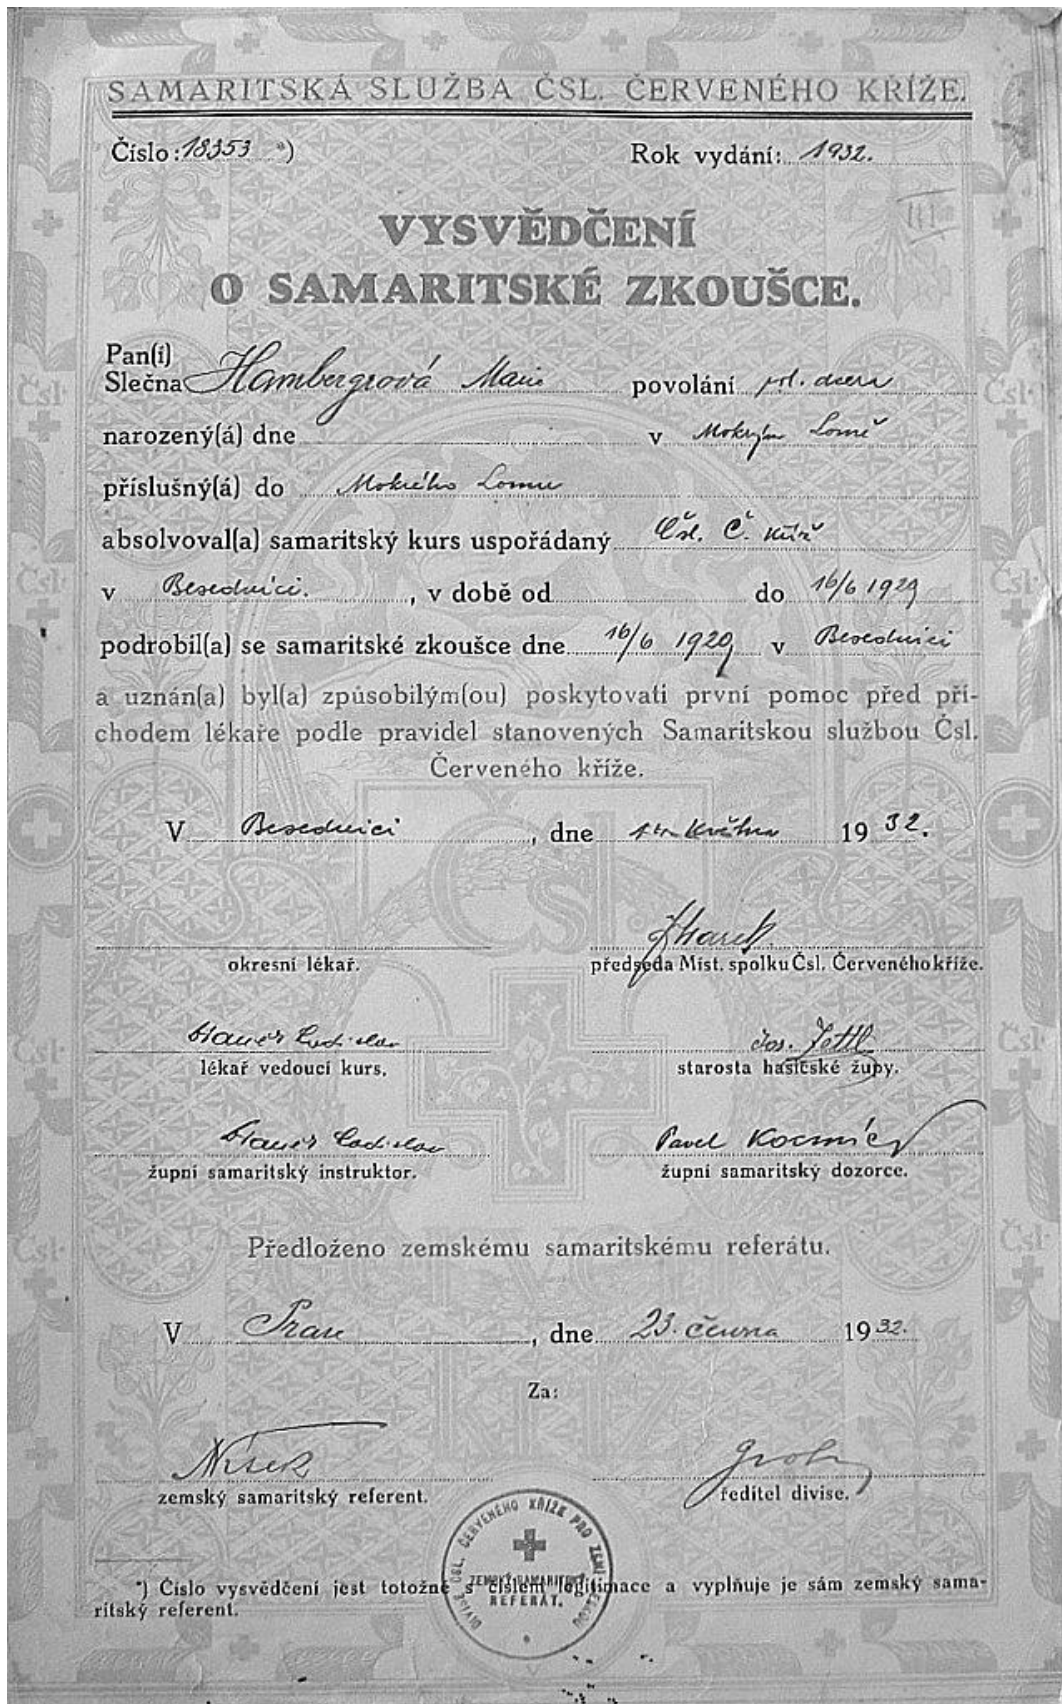 SAMARITSKÁ SLUŽBA ČSL. ČERVENÉHO KŘÍŽE.
Číslo: 18353 *) Rok vydání: 1932.
III
VYSVĚDČENÍ
O SAMARITSKÉ ZKOUŠCE.
Pan(í)
Slečna Hambergrová Marie povolání rol. dcera
narozený(á) dne v Mokrým Lomě
příslušný(á) do Mokrého Lomu
absolvoval(a) samaritský kurs uspořádaný Čsl. Č. kříž
v Besednici. , v době od do 16/6 1929
podrobil(a) se samaritské zkoušce dne 16/6 1929 v Besednici
a uznán(a) byl(a) způsobilým(ou) poskytovati první pomoc před pří-
chodem lékaře podle pravidel stanovených Samaritskou službou Čsl.
Červeného kříže.
V Besednici , dne května 1932.
okresní lékař. předseda Míst. spolku Čsl. Červeného kříže.
Ladislav Jos.
lékař vedoucí kurs. starosta hasičské župy.
Ladislav Pavel
župní samaritský instruktor. župní samaritský dozorce.
Předloženo zemskému samaritskému referátu.
V Praze , dne 23. června 1932.
Za:
zemský samaritský referent. ředitel divise.
DIVISE ČSL. ČERVENÉHO KŘÍŽE PRO ZEMI ČESKOU
ZEMSKÝ SAMARITSKÝ
REFERÁT.
*) Číslo vysvědčení jest totožné s číslem legitimace a vyplňuje je sám zemský sama-
ritský referent.